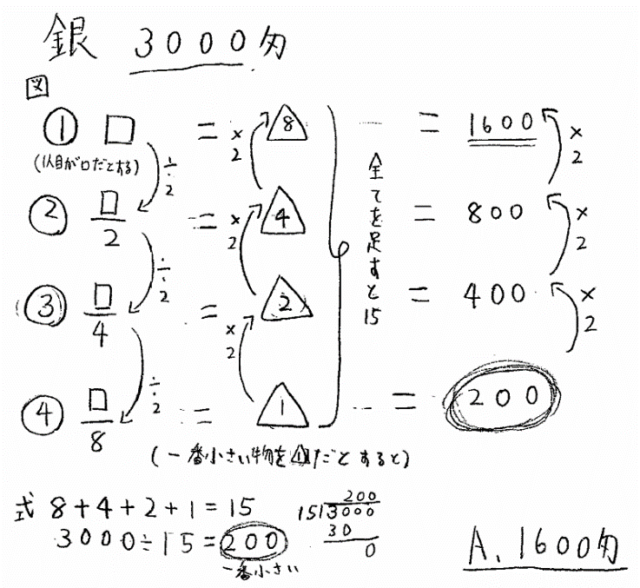 銀 3000匁
図
① □ = 8 … = 1600
(1人目が□だとする)
÷2
×2
×2
② □/2 = 4 = 800
÷2
×2
×2
全てを足すと15
③ □/4 = 2 = 400
÷2
×2
×2
④ □/8 = 1 … = 200
(一番小さい物を①だとすると)
式 8+4+2+1=15
3000÷15=200
一番小さい
200
15)3000
30
0
A. 1600匁